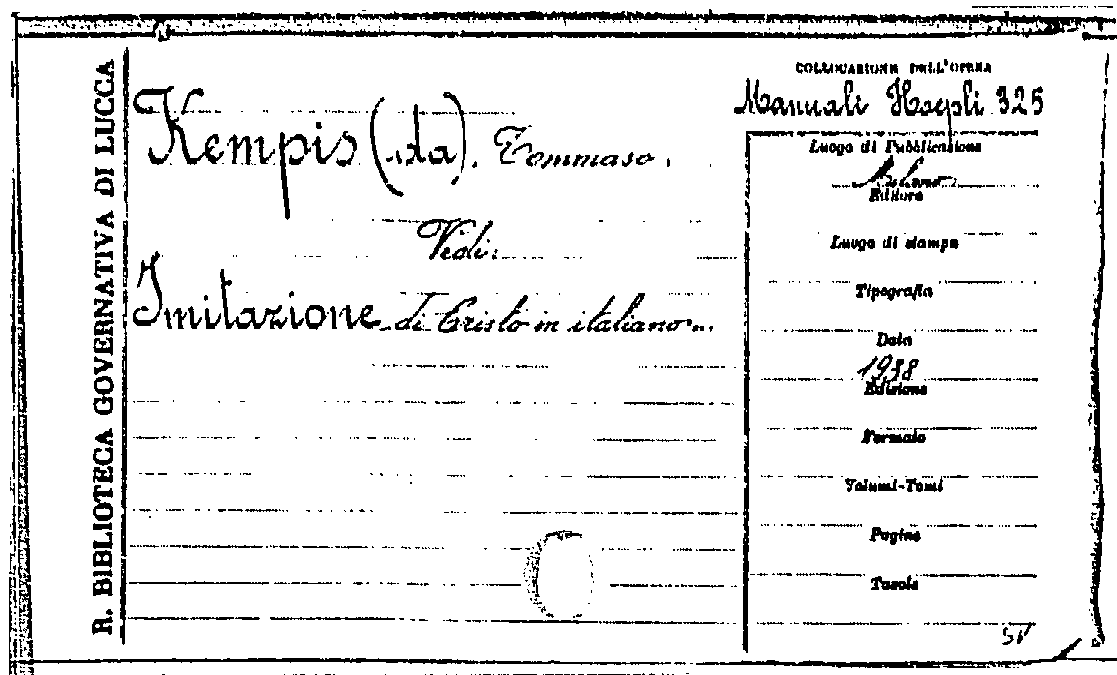 R. BIBLIOTECA GOVERNATIVA DI LUCCA
Kempis (da). Tommaso.
Vedi:
Imitazione di Cristo in italiano...
COLLOCAZIONE DELL'OPERA
Manuali Hoepli 325
Luogo di Pubblicazione
Milano
Editore
Luogo di stampa
Tipografia
Data
1938
Edizione
Formato
Volumi-Tomi
Pagine
Tavole